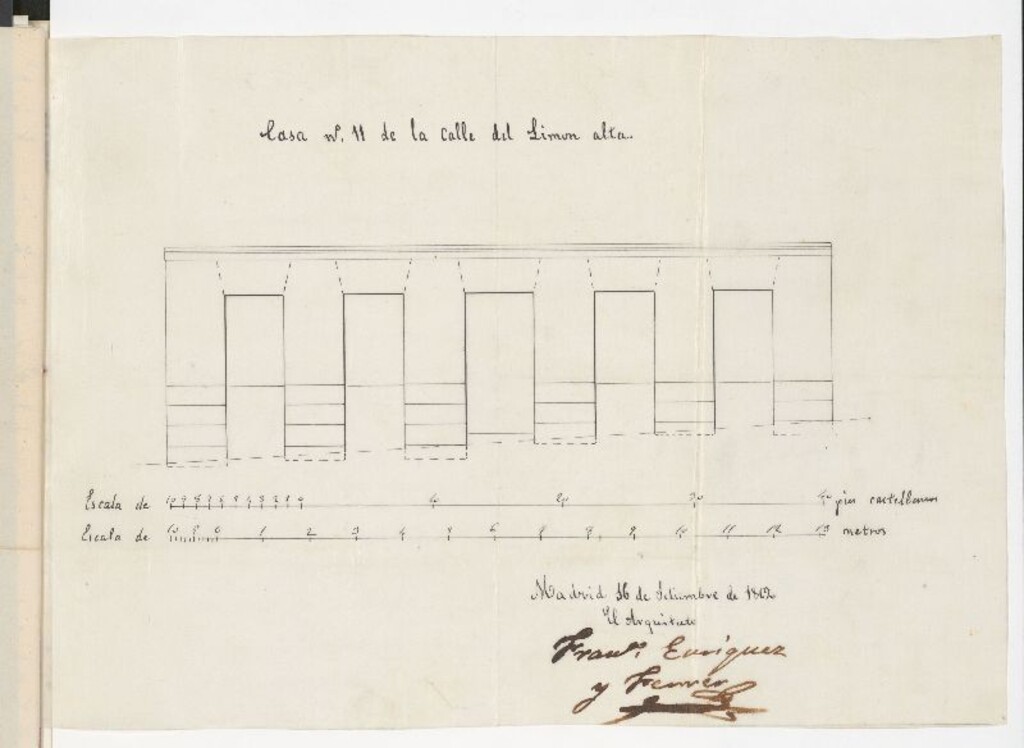 Casa nº. 11 de la Calle del Limon alta.
Escala de 10 9 8 7 6 5 4 3 2 1 0 10 20 30 40 pies castellanos
Escala de 10 5 0 1 2 3 4 5 6 7 8 9 10 11 12 13 metros
Madrid 16 de Setiembre de
El Arquitecto
Franco. Enriquez
y Ferrer